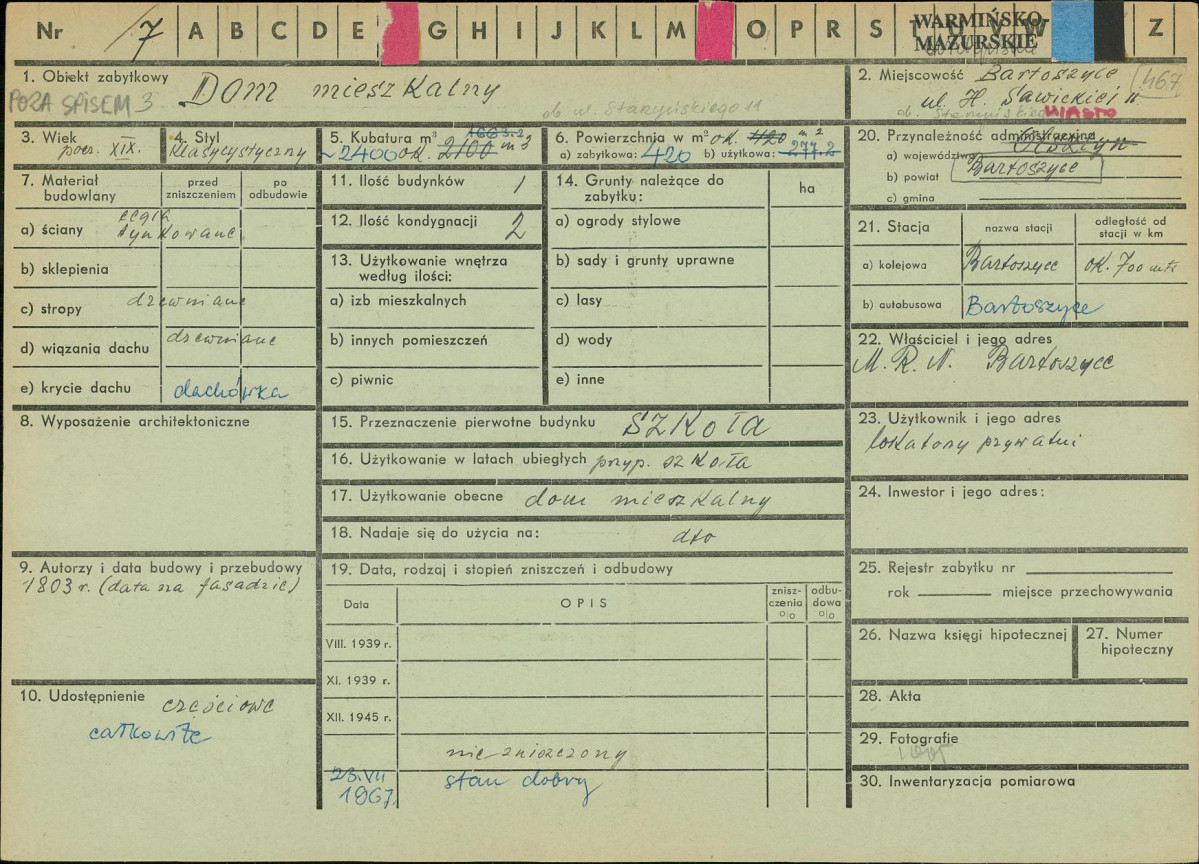 Nr 17 A B C D E G H I J K L M O P R S T U V W Z
WARMIŃSKO
MAZURSKIE
1. Obiekt zabytkowy Dom mieszkalny
POZA SPISEM 3
ob. ul. Starzyńskiego 11
2. Miejscowość Bartoszyce 467
ul. H. Sawickiej 11
ob. Starzyńskiego MIASTO
3. Wiek
pocz. XIX.
4. Styl
klasycystyczny
5. Kubatura m³ 1663.2
~2400 ok. 2100 m3
6. Powierzchnia w m² ok. 420 m2
a) zabytkowa: 420 b) użytkowa: 277.2
20. Przynależność administracyjna
a) województwo Olsztyn
b) powiat Bartoszyce
c) gmina
7. Materiał budowlany
przed zniszczeniem
po odbudowie
a) ściany cegła
tynkowane
b) sklepienia
c) stropy drewniane
d) wiązania dachu drewniane
e) krycie dachu dachówka
11. Ilość budynków 1
12. Ilość kondygnacji 2
13. Użytkowanie wnętrza
według ilości:
a) izb mieszkalnych
b) innych pomieszczeń
c) piwnic
14. Grunty należące do
zabytku:
ha
a) ogrody stylowe
b) sady i grunty uprawne
c) lasy
d) wody
e) inne
21. Stacja
nazwa stacji
odległość od
stacji w km
a) kolejowa Bartoszyce ok. 700 mtr
b) autobusowa Bartoszyce
22. Właściciel i jego adres
M. R. N. Bartoszyce
8. Wyposażenie architektoniczne
15. Przeznaczenie pierwotne budynku SZKOŁA
16. Użytkowanie w latach ubiegłych przyp. szkoła
17. Użytkowanie obecne dom mieszkalny
18. Nadaje się do użycia na: dto
23. Użytkownik i jego adres
lokatorzy prywatni
24. Inwestor i jego adres:
9. Autorzy i data budowy i przebudowy
1803 r. (data na fasadzie)
19. Data, rodzaj i stopień zniszczeń i odbudowy
Data
OPIS
znisz-
czenia
o|o
odbu-
dowa
o|o
VIII. 1939 r.
XI. 1939 r.
XII. 1945 r.
nie zniszczony
23.VII
1967.
stan dobry
25. Rejestr zabytku nr
rok miejsce przechowywania
26. Nazwa księgi hipotecznej
27. Numer
hipoteczny
10. Udostępnienie częściowe
całkowite
28. Akta
29. Fotografie
30. Inwentaryzacja pomiarowa